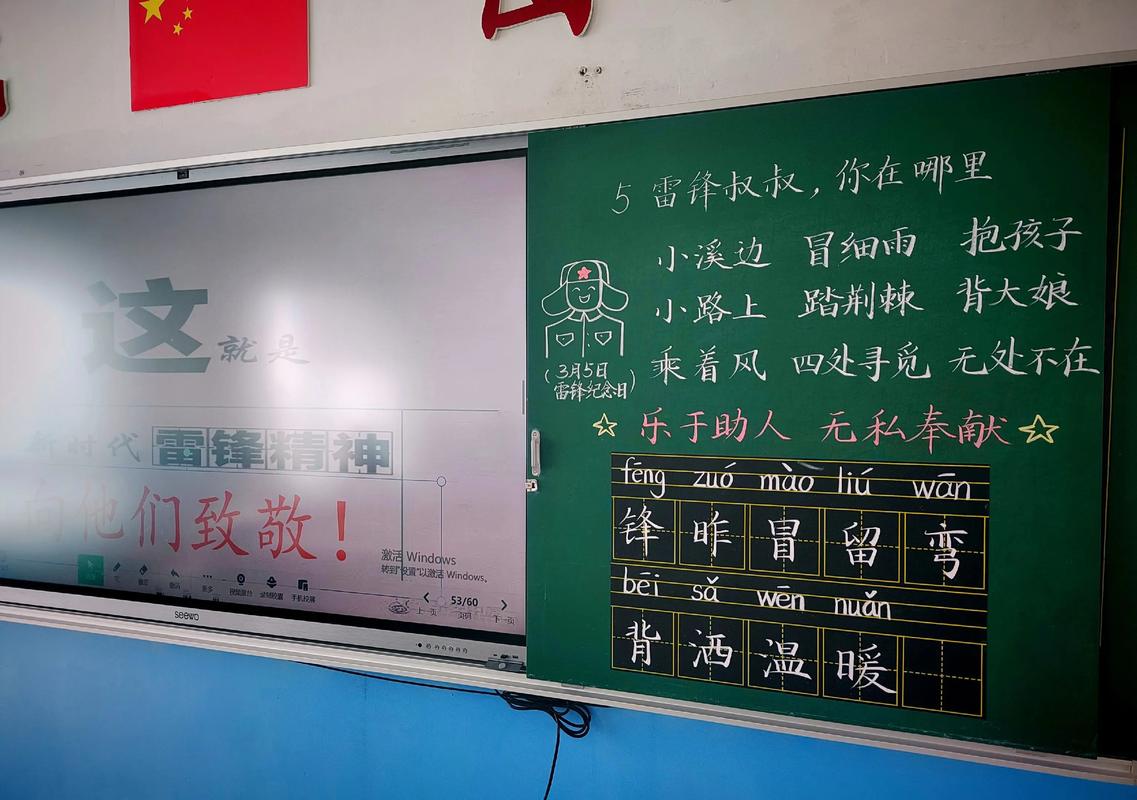 这就是
新时代 雷锋精神
向他们致敬！
激活 Windows
转到"设置"以激活 Windows。
更多
上一页
53/60
页码
下一页
seewo
5 雷锋叔叔，你在哪里
小溪边 冒细雨 抱孩子
小路上 踏荆棘 背大娘
乘着风 四处寻觅 无处不在
（3月5日
雷锋纪念日）
乐于助人 无私奉献
fēng zuó mào liú wān
锋 昨 冒 留 弯
bēi sǎ wēn nuǎn
背 洒 温 暖